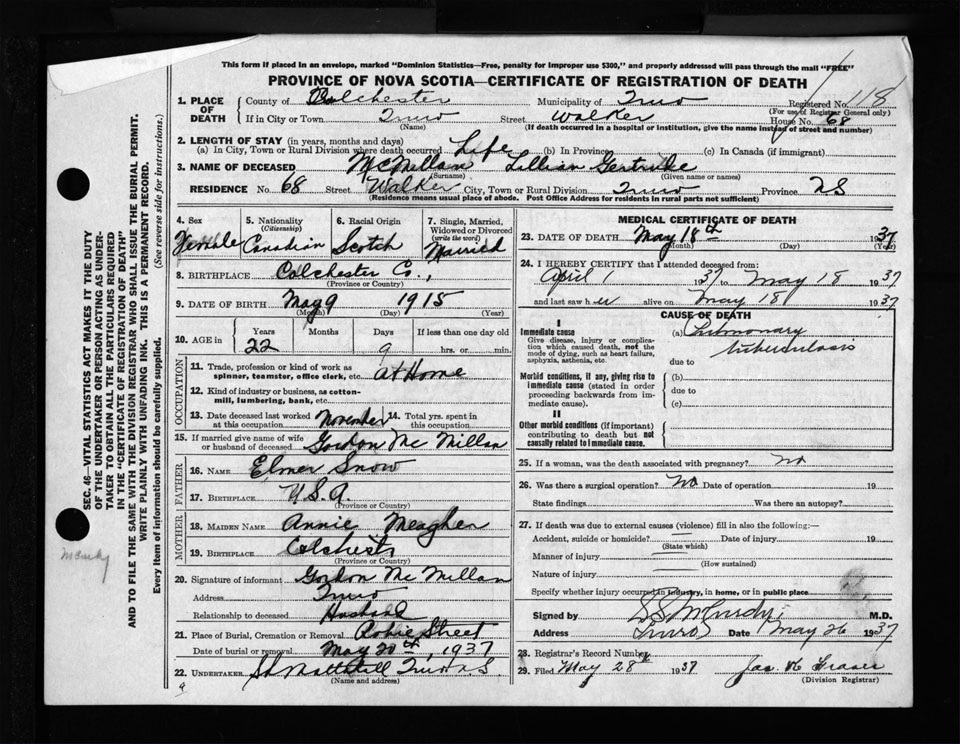 This form if placed in an envelope, marked "Dominion Statistics—Free, penalty for improper use $300," and properly addressed will pass through the mail "FREE"
PROVINCE OF NOVA SCOTIA—CERTIFICATE OF REGISTRATION OF DEATH
1. PLACE OF DEATH County of Colchester Municipality of Truro Registered No. 118
(For use of Registrar General only)
If in City or Town Truro Street Walker House No. 68
(Name) (If death occurred in a hospital or institution, give the name instead of street and number)
2. LENGTH OF STAY (in years, months and days)
(a) In City, Town or Rural Division where death occurred Life (b) In Province (c) In Canada (if immigrant)
3. NAME OF DECEASED McMillan Lillian Gertrude
(Surname) (Given name or names)
RESIDENCE No. 68 Street Walker City, Town or Rural Division Truro Province NS
(Residence means usual place of abode. Post Office Address for residents in rural parts not sufficient)
4. Sex Female
5. Nationality (Citizenship) Canadian
6. Racial Origin Scotch
7. Single, Married, Widowed or Divorced (write the word) Married
8. BIRTHPLACE Colchester Co.,
(Province or Country)
9. DATE OF BIRTH May 9 1915
(Month) (Day) (Year)
10. AGE in Years 22 Months Days 9 If less than one day old hrs. or min.
OCCUPATION
11. Trade, profession or kind of work as spinner, teamster, office clerk, etc. At Home
12. Kind of industry or business, as cotton-mill, lumbering, bank, etc.
13. Date deceased last worked at this occupation November 14. Total yrs. spent in this occupation
15. If married give name of wife or husband of deceased Gordon McMillan
FATHER
16. NAME Elmer Snow
17. BIRTHPLACE U.S.A.
(Province or Country)
MOTHER
18. MAIDEN NAME Annie Meagher
19. BIRTHPLACE Colchester
(Province or Country)
20. Signature of informant Gordon McMillan
Address Truro
Relationship to deceased Husband
21. Place of Burial, Cremation or Removal Robie Street
Date of burial or removal May 20th, 1937
22. UNDERTAKER Truro N.S.
(Name and address)
MEDICAL CERTIFICATE OF DEATH
23. DATE OF DEATH May 18th 1937
(Month) (Day)
24. I HEREBY CERTIFY that I attended deceased from:
April 1 1937 to May 18 1937
and last saw her alive on May 18 1937
CAUSE OF DEATH
I
Immediate cause (a) Pulmonary tuberculosis
Give disease, injury or complication which caused death, not the mode of dying, such as heart failure, asphyxia, asthenia, etc.
due to
Morbid conditions, if any, giving rise to immediate cause (stated in order proceeding backwards from immediate cause). (b)
due to
(c)
II
Other morbid conditions (if important) contributing to death but not causally related to immediate cause.
25. If a woman, was the death associated with pregnancy? No
26. Was there a surgical operation? No Date of operation 19
State findings Was there an autopsy?
27. If death was due to external causes (violence) fill in also the following:—
Accident, suicide or homicide? Date of injury 19
(State which)
Manner of injury
(How sustained)
Nature of injury
Specify whether injury occurred in industry, in home, or in public place
Signed by M.D.
Address Truro Date May 26 1937
28. Registrar's Record Number
29. Filed May 28 1937 Jas. Fraser
(Division Registrar)
SEC. 46—VITAL STATISTICS ACT MAKES IT THE DUTY
OF THE UNDERTAKER OR PERSON ACTING AS UNDER-
TAKER TO OBTAIN ALL THE PARTICULARS REQUIRED
IN THE "CERTIFICATE OF REGISTRATION OF DEATH"
AND TO FILE THE SAME WITH THE DIVISION REGISTRAR WHO SHALL ISSUE THE BURIAL PERMIT.
WRITE PLAINLY WITH UNFADING INK. THIS IS A PERMANENT RECORD.
Every item of information should be carefully supplied. (See reverse side for instructions.)